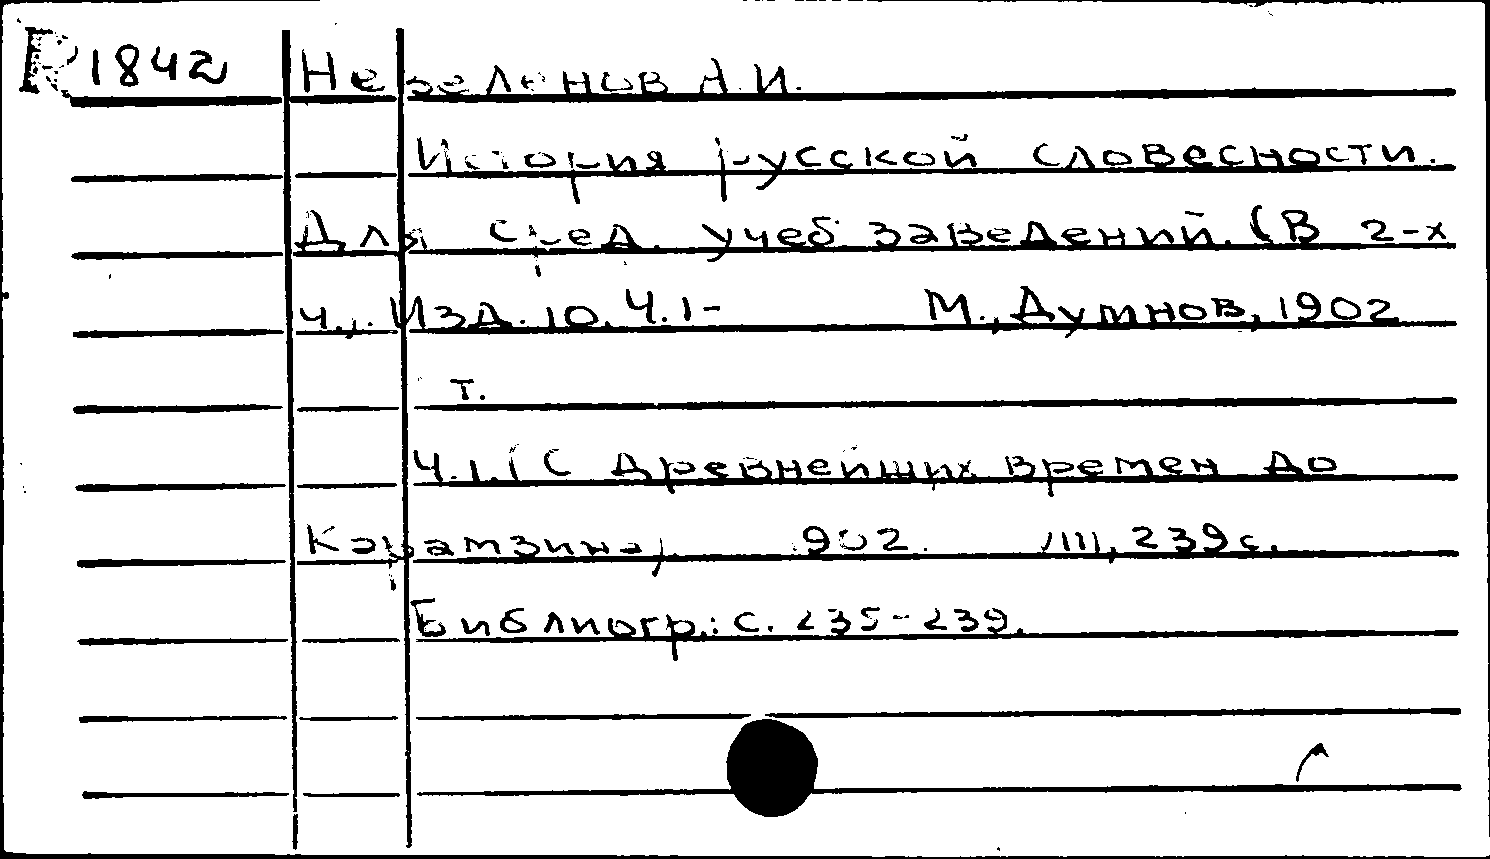 R1842 Незеленов А.И.
История русской словесности.
Для сред. учеб. заведений. (В 2-х
ч.). Изд. 10. Ч.1- М., Думнов, 1902
т.
Ч.1. (С древнейших времен до
Карамзина). 902. 239 с.
Библиогр.: с. 235-239.